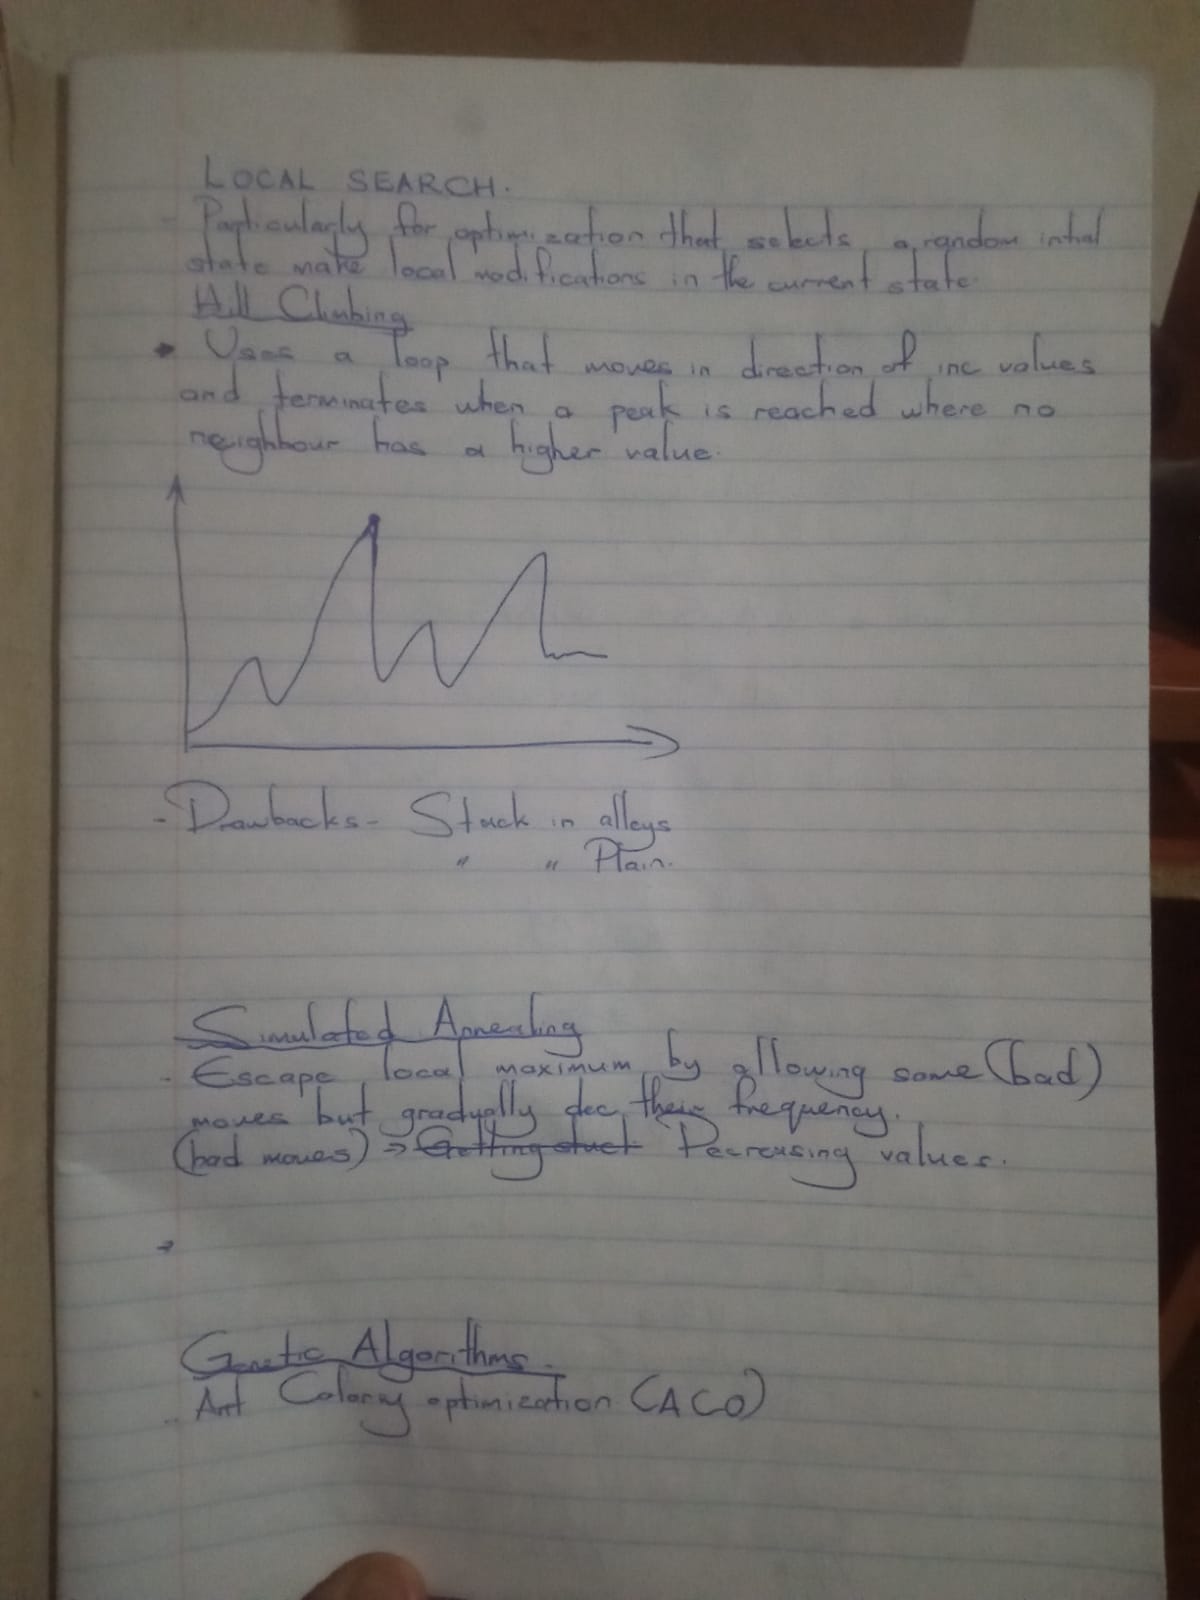 LOCAL SEARCH.
- Particularly for optimization that selects a random intial
state make local modifications in the current state.
Hill Climbing
• Uses a loop that moves in direction of inc values
and terminates when a peak is reached where no
neighbour has a higher value.
- Drawbacks - Stuck in alleys
" " Plain.
Simulated Annealing
- Escape local maximum by allowing some (bad)
moves but gradually dec their frequency.
(bad moves) → Getting stuck Decreasing values.
Genetic Algorithms.
- Ant Colony optimization (ACO)